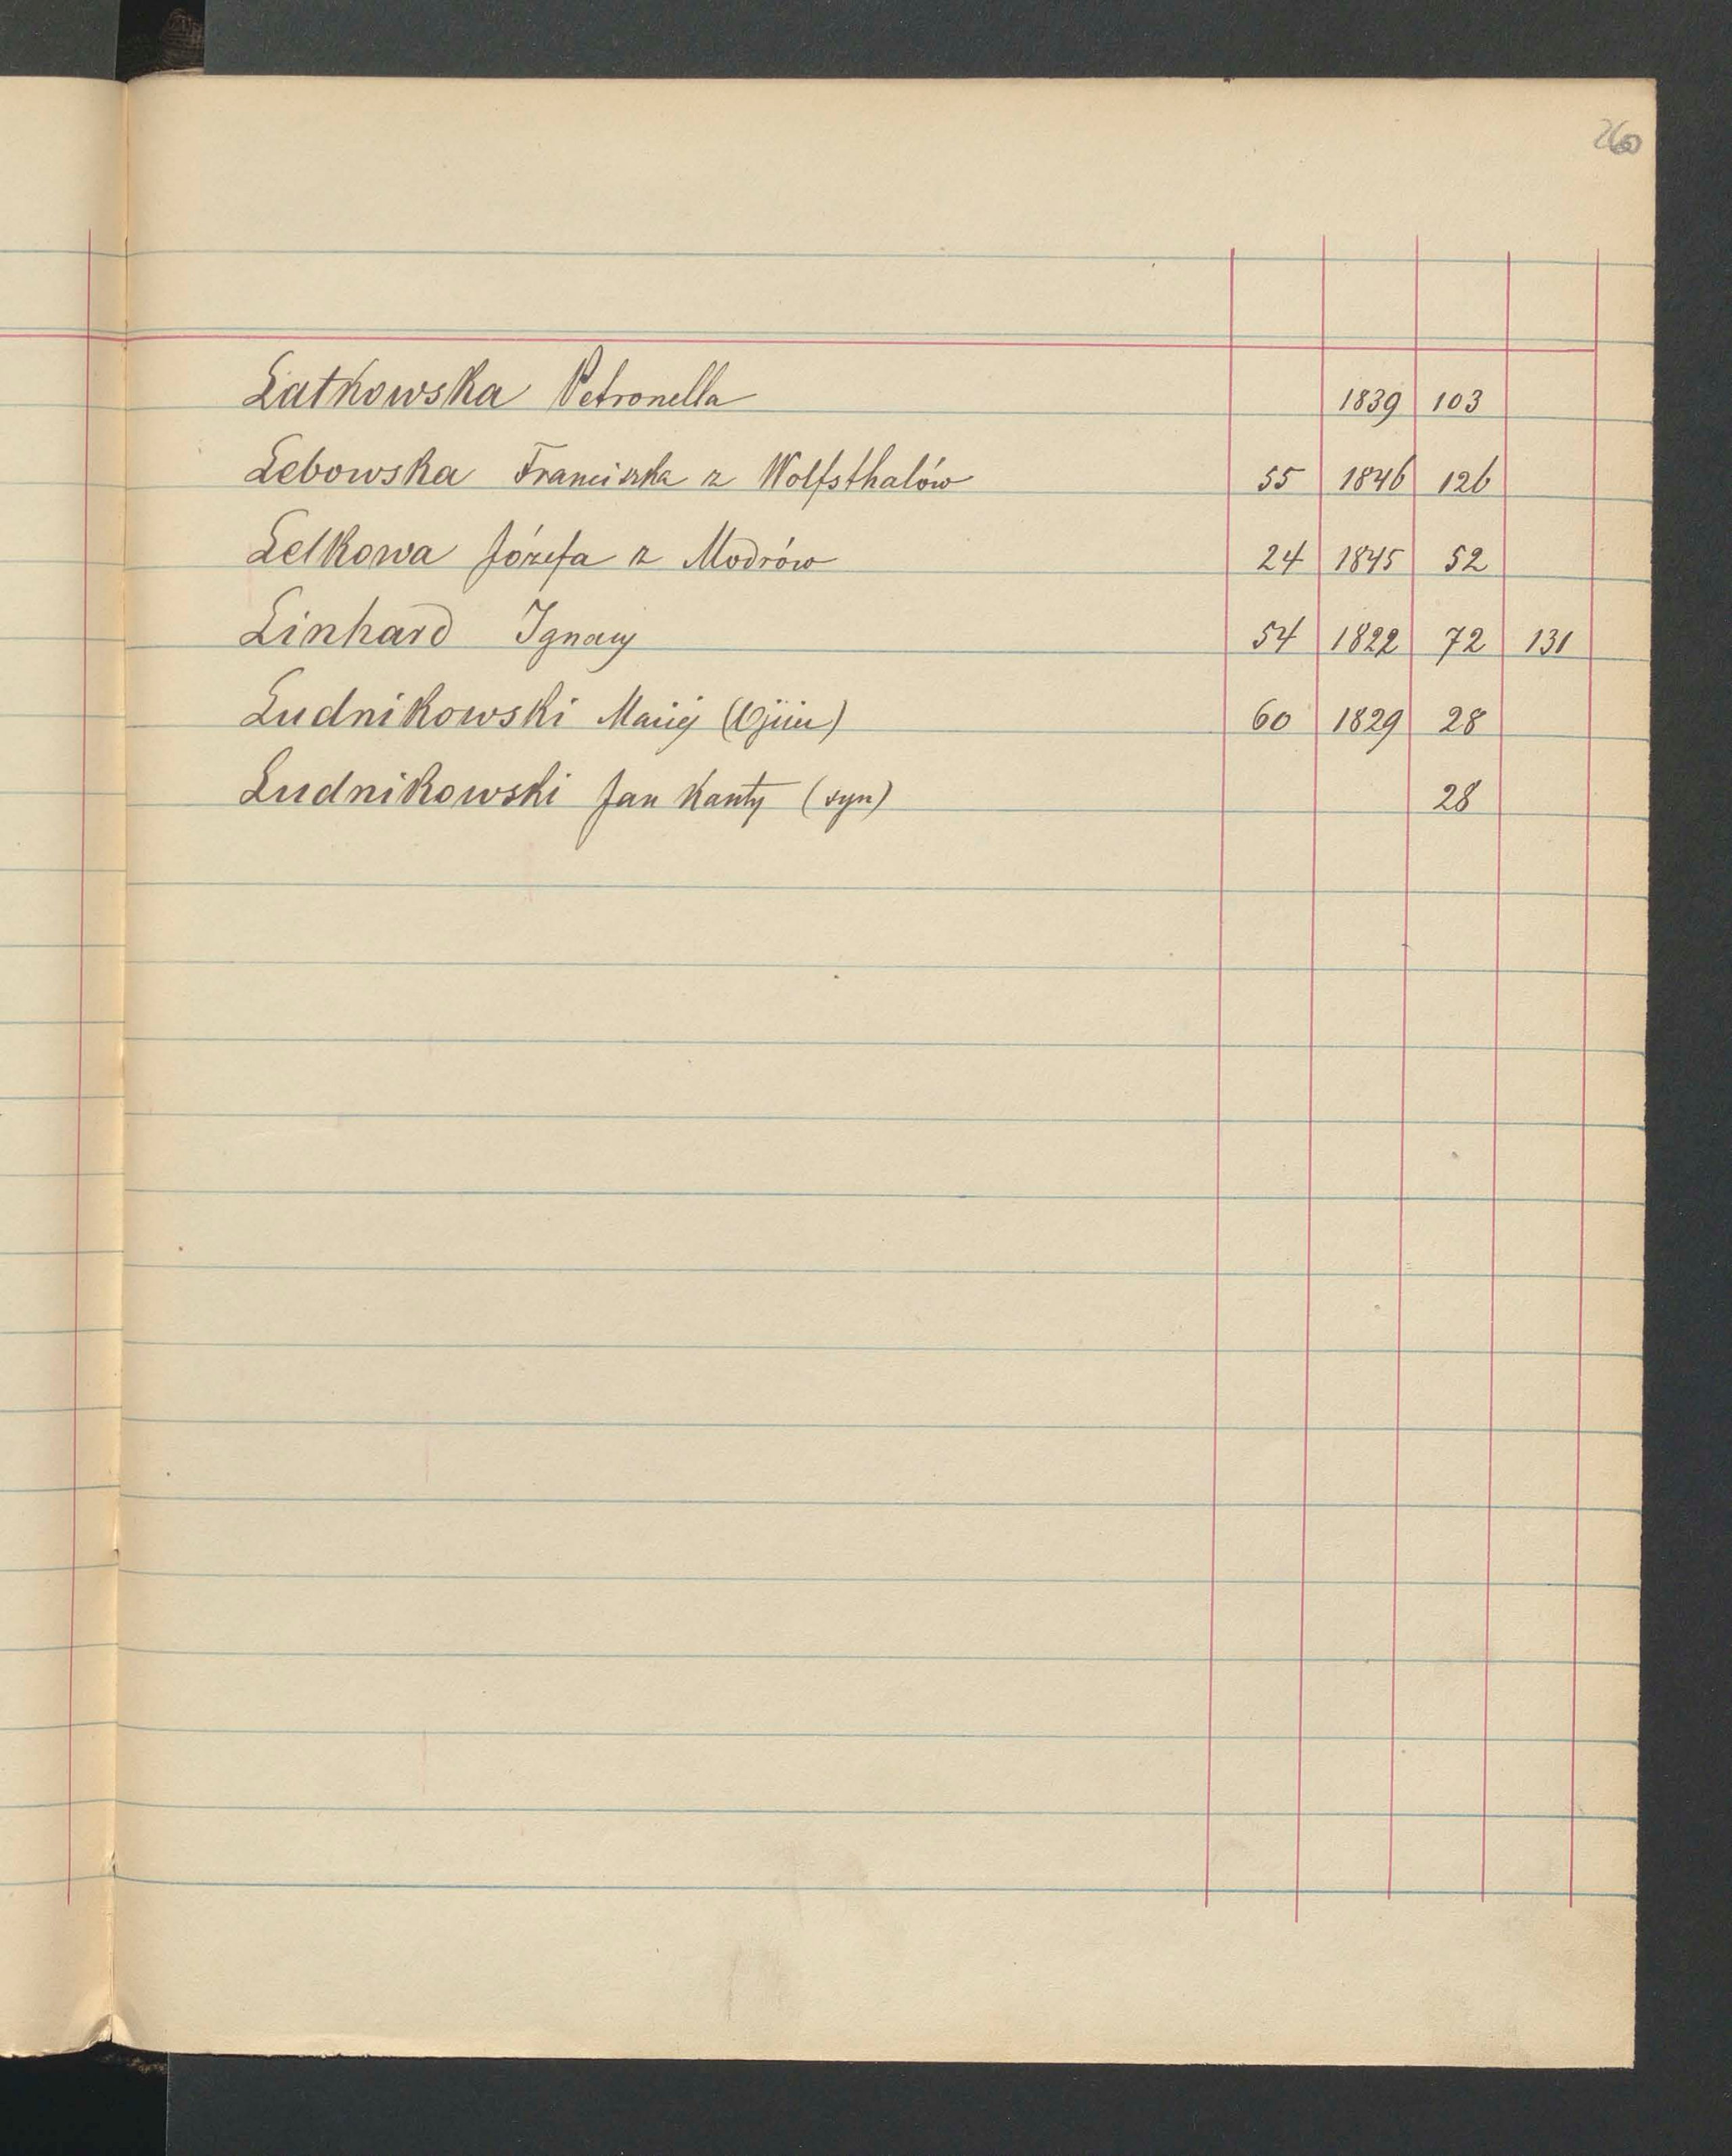 260
Latkowska Petronella 1839 103
Lebowska Franciszka z Wolfsthalów 55 1846 126
Lelkowa Józefa z Modrów 24 1845 52
Linhard Ignacy 54 1822 72 131
Ludnikowski Maciej (Ojciec) 60 1829 28
Ludnikowski Jan Kanty (syn) 28